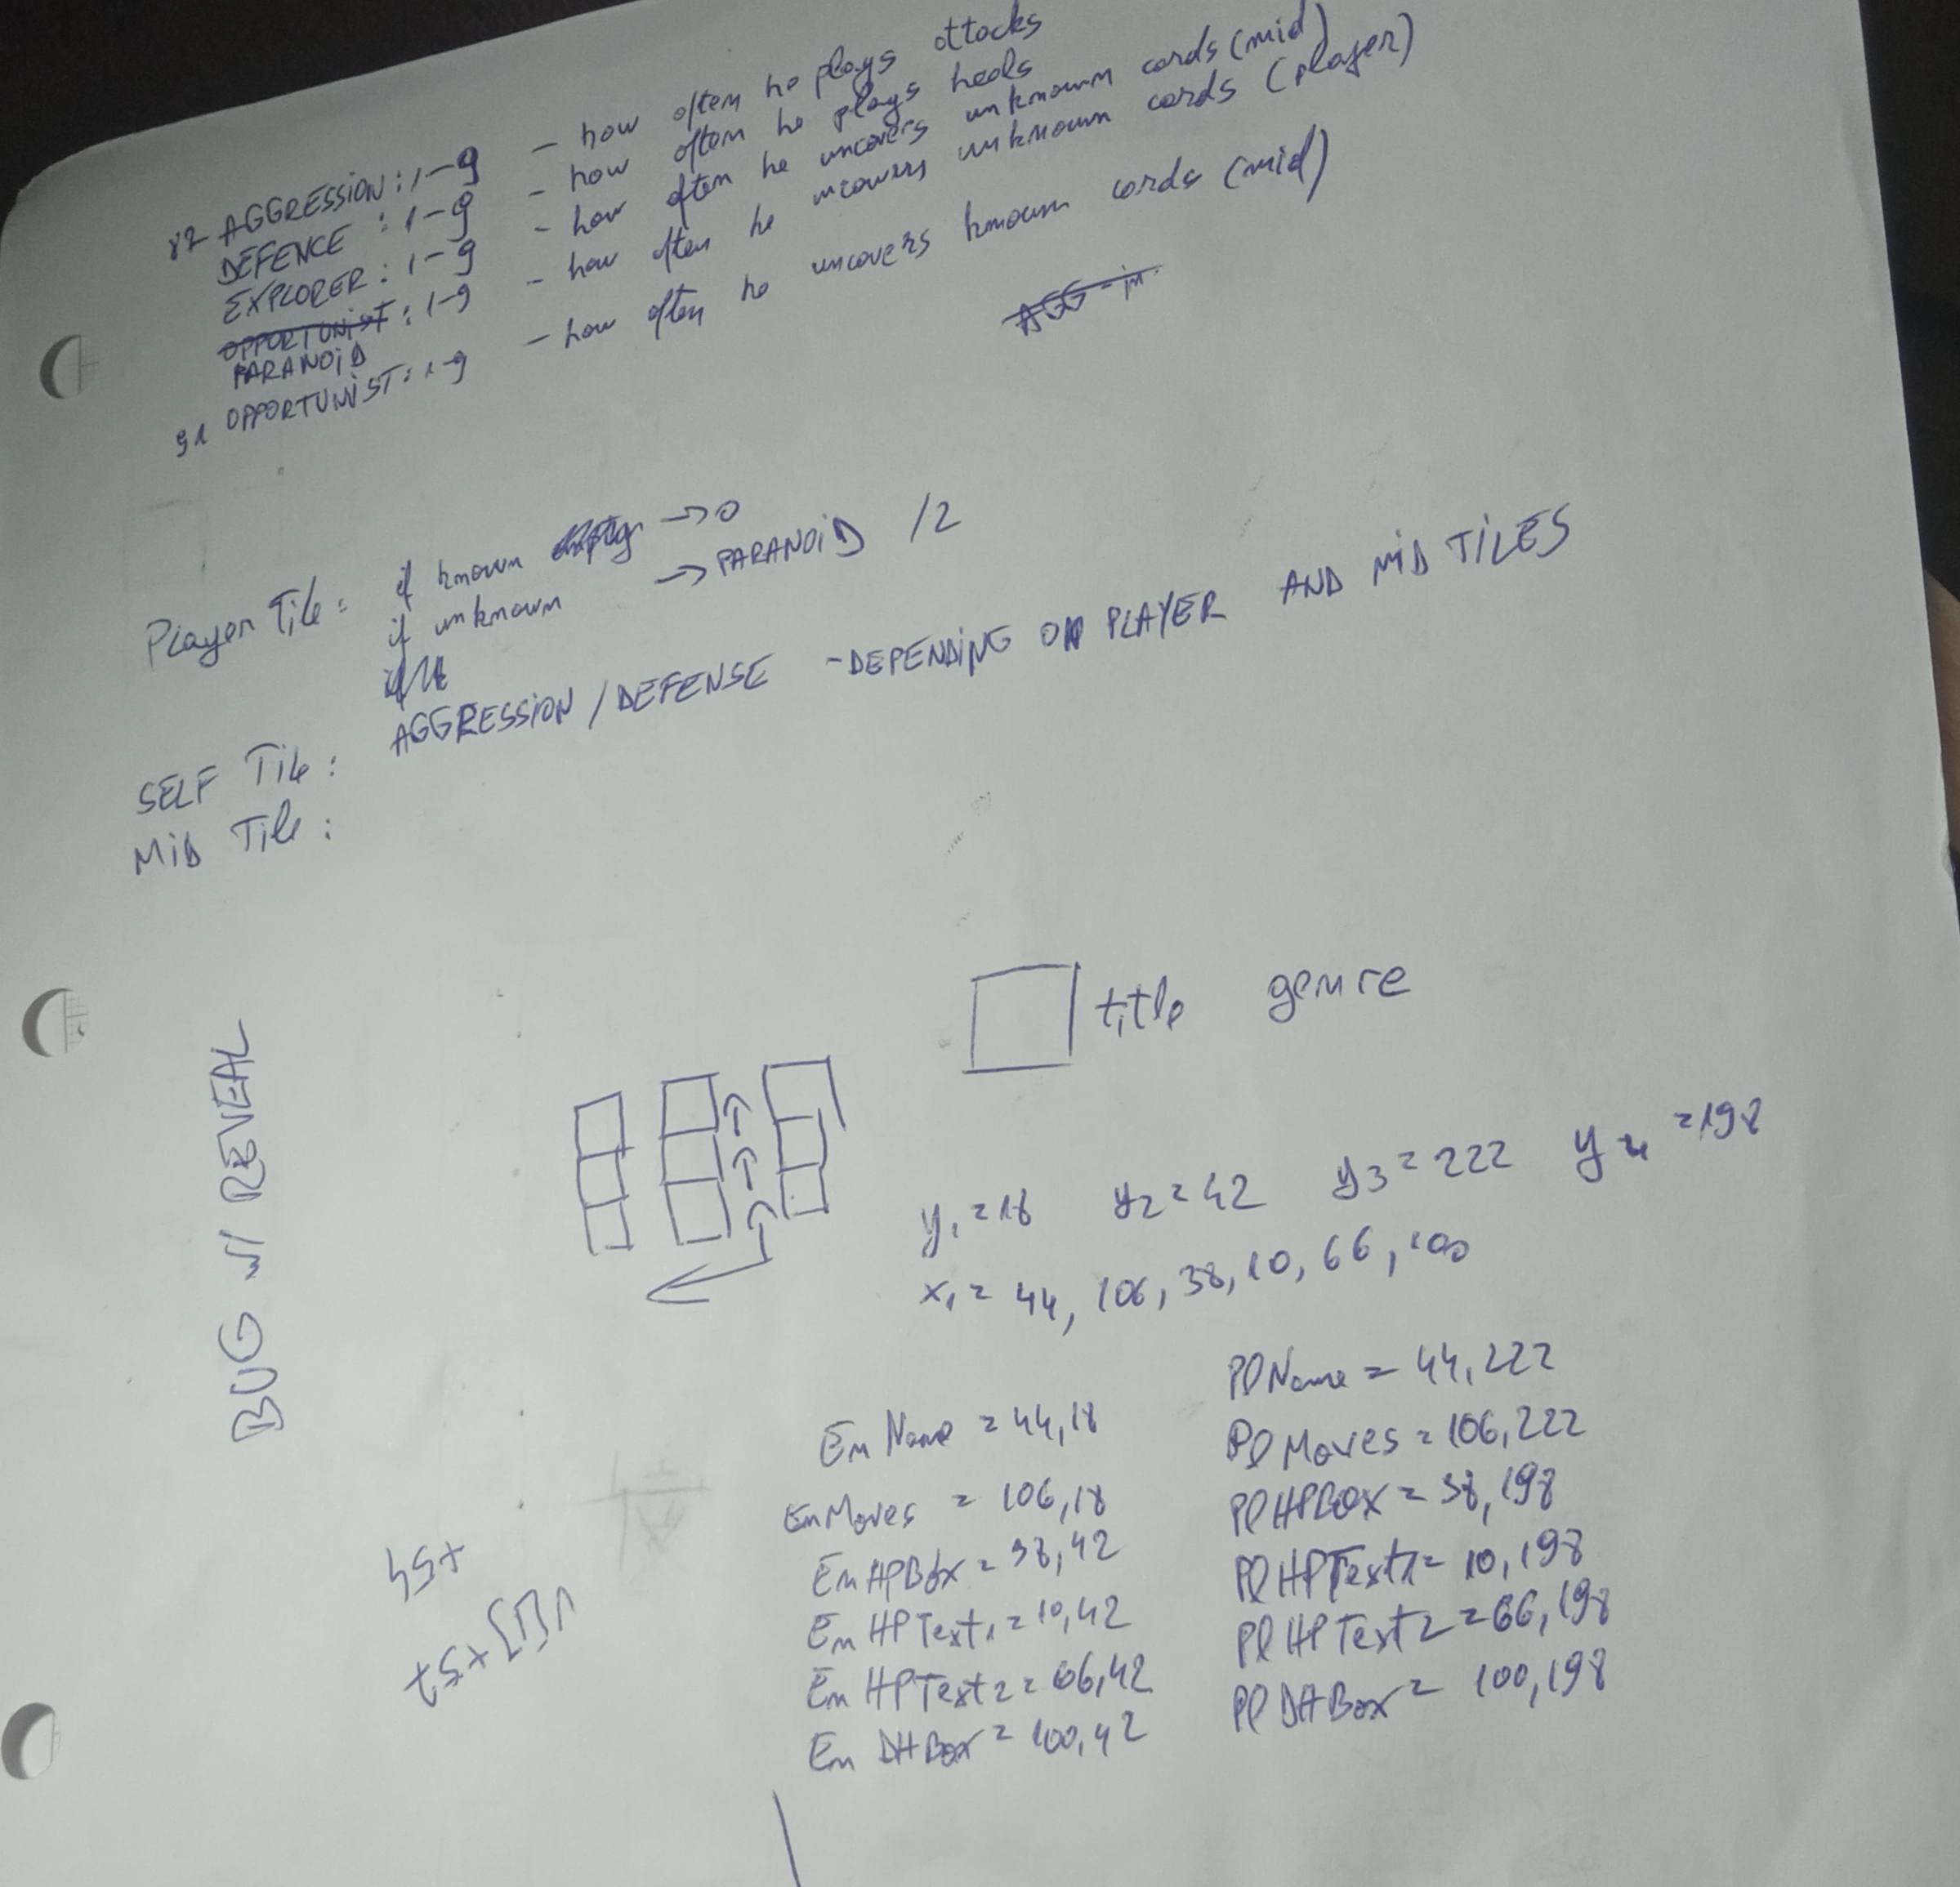 87 AGGRESSION: 1-9 - how often he plays attacks
DEFENCE : 1-9 - how often he plays heals
EXPLORER : 1-9 - how often he uncovers unknown cards (mid)
OPPORTUNIST : 1-9 - how often he uncovers unknown cards (player)
PARANOID
91 OPPORTUNIST: 1-9 - how often he uncovers known cards (mid)
AGG - in
Player Tile: if known empty → 0
if unknown → PARANOID /2
SELF Tile: AGGRESSION / DEFENSE - DEPENDING ON PLAYER AND MID TILES
MID Tile:
title genre
BUG w/ REVEAL
y1 = 18 y2 = 42 y3 = 222 y4 = 198
x1 = 44, 106, 38, 10, 66, 100
En Name = 44,18
EnMoves = 106,18
En HPBox = 38,42
En HPText1 = 10,42
En HPText2 = 66,42
En DHBox = 100,42
PlName = 44,222
PlMoves = 106,222
PlHPBOX = 38,198
PlHPText1 = 10,198
PlHPText2 = 66,198
PlDHBox = 100,198